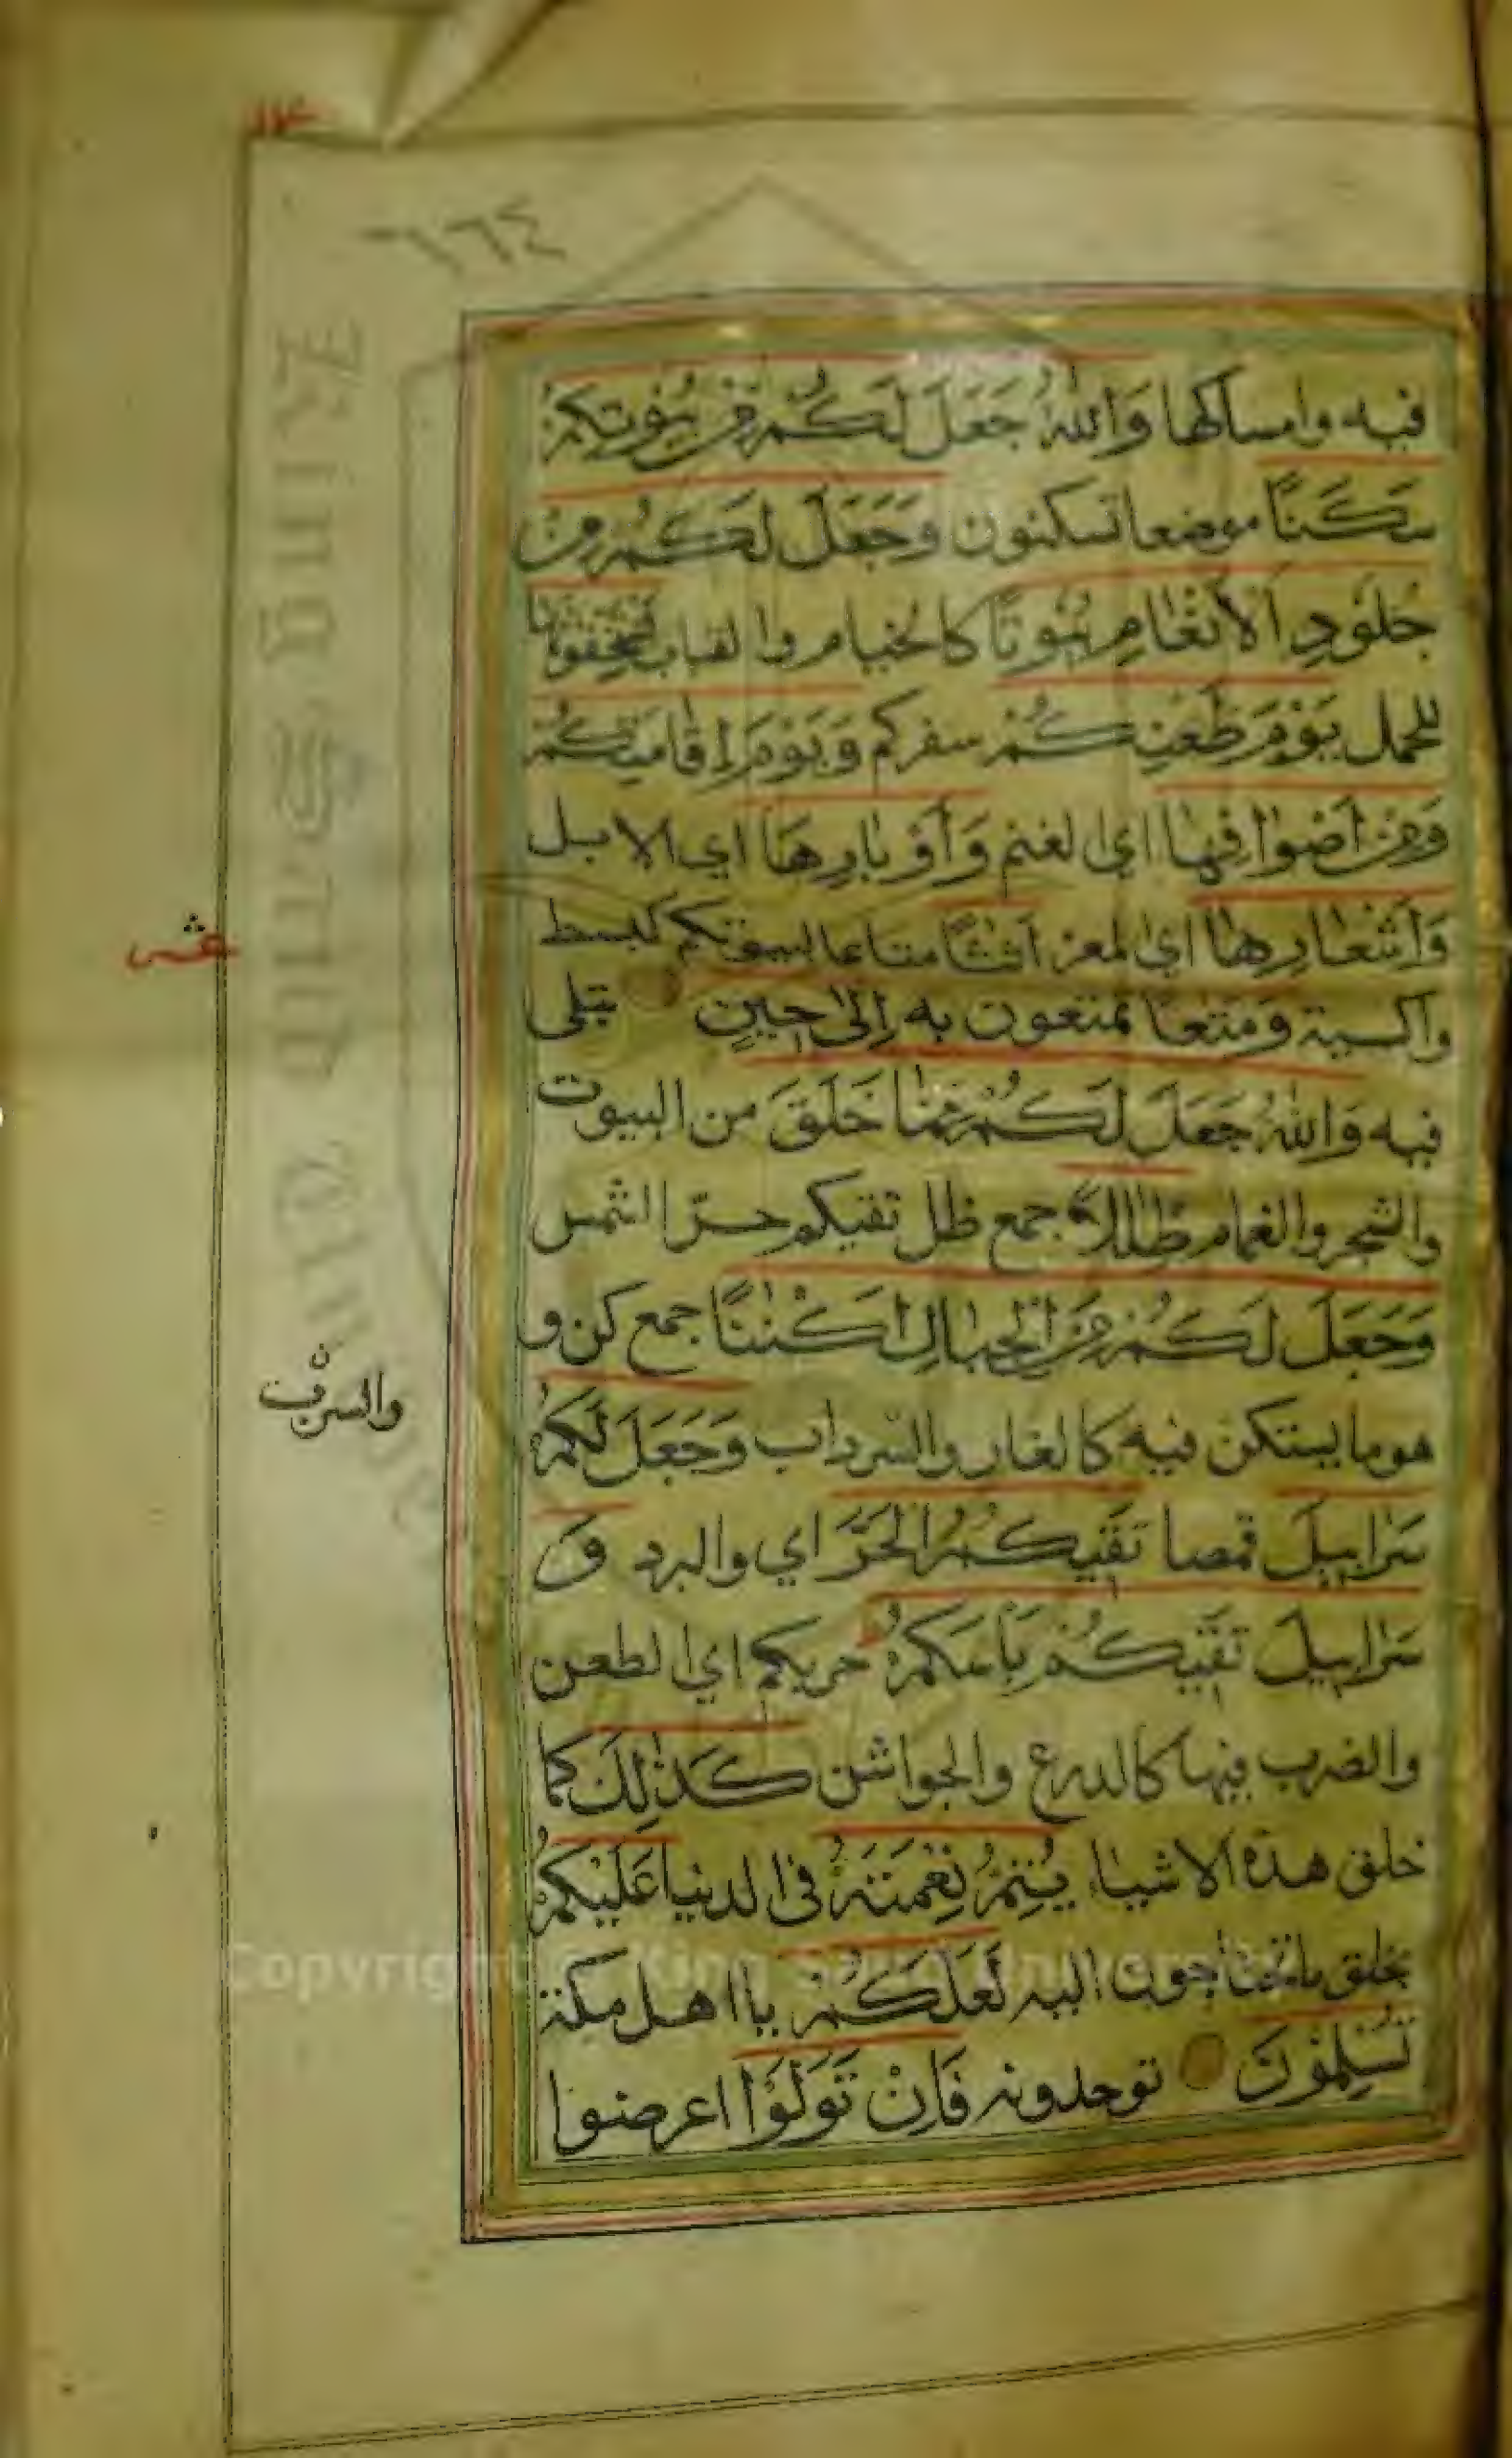 ١٦٤
فيه وامساكها وَاللّٰهُ جَعَلَ لَكُمْ مِنْ بُيُوتِكُمْ
سَكَنًا موضعا تسكنون وَجَعَلَ لَكُمْ مِنْ
جُلُودِ الْاَنْعَامِ بُيُوتًا كالخيام والقباب تَسْتَخِفُّونَهَا
للحمل يَوْمَ ظَعْنِكُمْ سفركم وَيَوْمَ اِقَامَتِكُمْ
وَمِنْ اَصْوَافِهَا اي الغنم وَاَوْبَارِهَا اي الابل
وَاَشْعَارِهَا اي المعز اَثٰثًا متاعا لبيوتكم كبسط
واكسية وَمَتٰعًا تمتعون به اِلٰى حِينٍ تبلى
فيه وَاللّٰهُ جَعَلَ لَكُمْ مِمَّا خَلَقَ من البيوت
والشجر والغمام ظِلٰلًا جمع ظل تقيكم حرّ الشمس
وَجَعَلَ لَكُمْ مِنَ الْجِبَالِ اَكْنٰنًا جمع كن و
هو ما يستكن فيه كالغار والسرداب وَجَعَلَ لَكُمْ
سَرَابِيلَ قمصا تَقِيكُمُ الْحَرَّ اي والبرد وَ
سَرَابِيلَ تَقِيكُمْ بَأْسَكُمْ حربكم اي الطعن
والضرب فيها كالدرع والجواشن كَذٰلِكَ كما
خلق هذه الاشياء يُتِمُّ نِعْمَتَهُ فى الدنيا عَلَيْكُمْ
بخلق ما تحتاجون اليه لَعَلَّكُمْ يا اهل مكة
تُسْلِمُونَ توحدونه فَاِنْ تَوَلَّوْا اعرضوا
والسرب
ن
Copyright © King Saud University
King Saud University